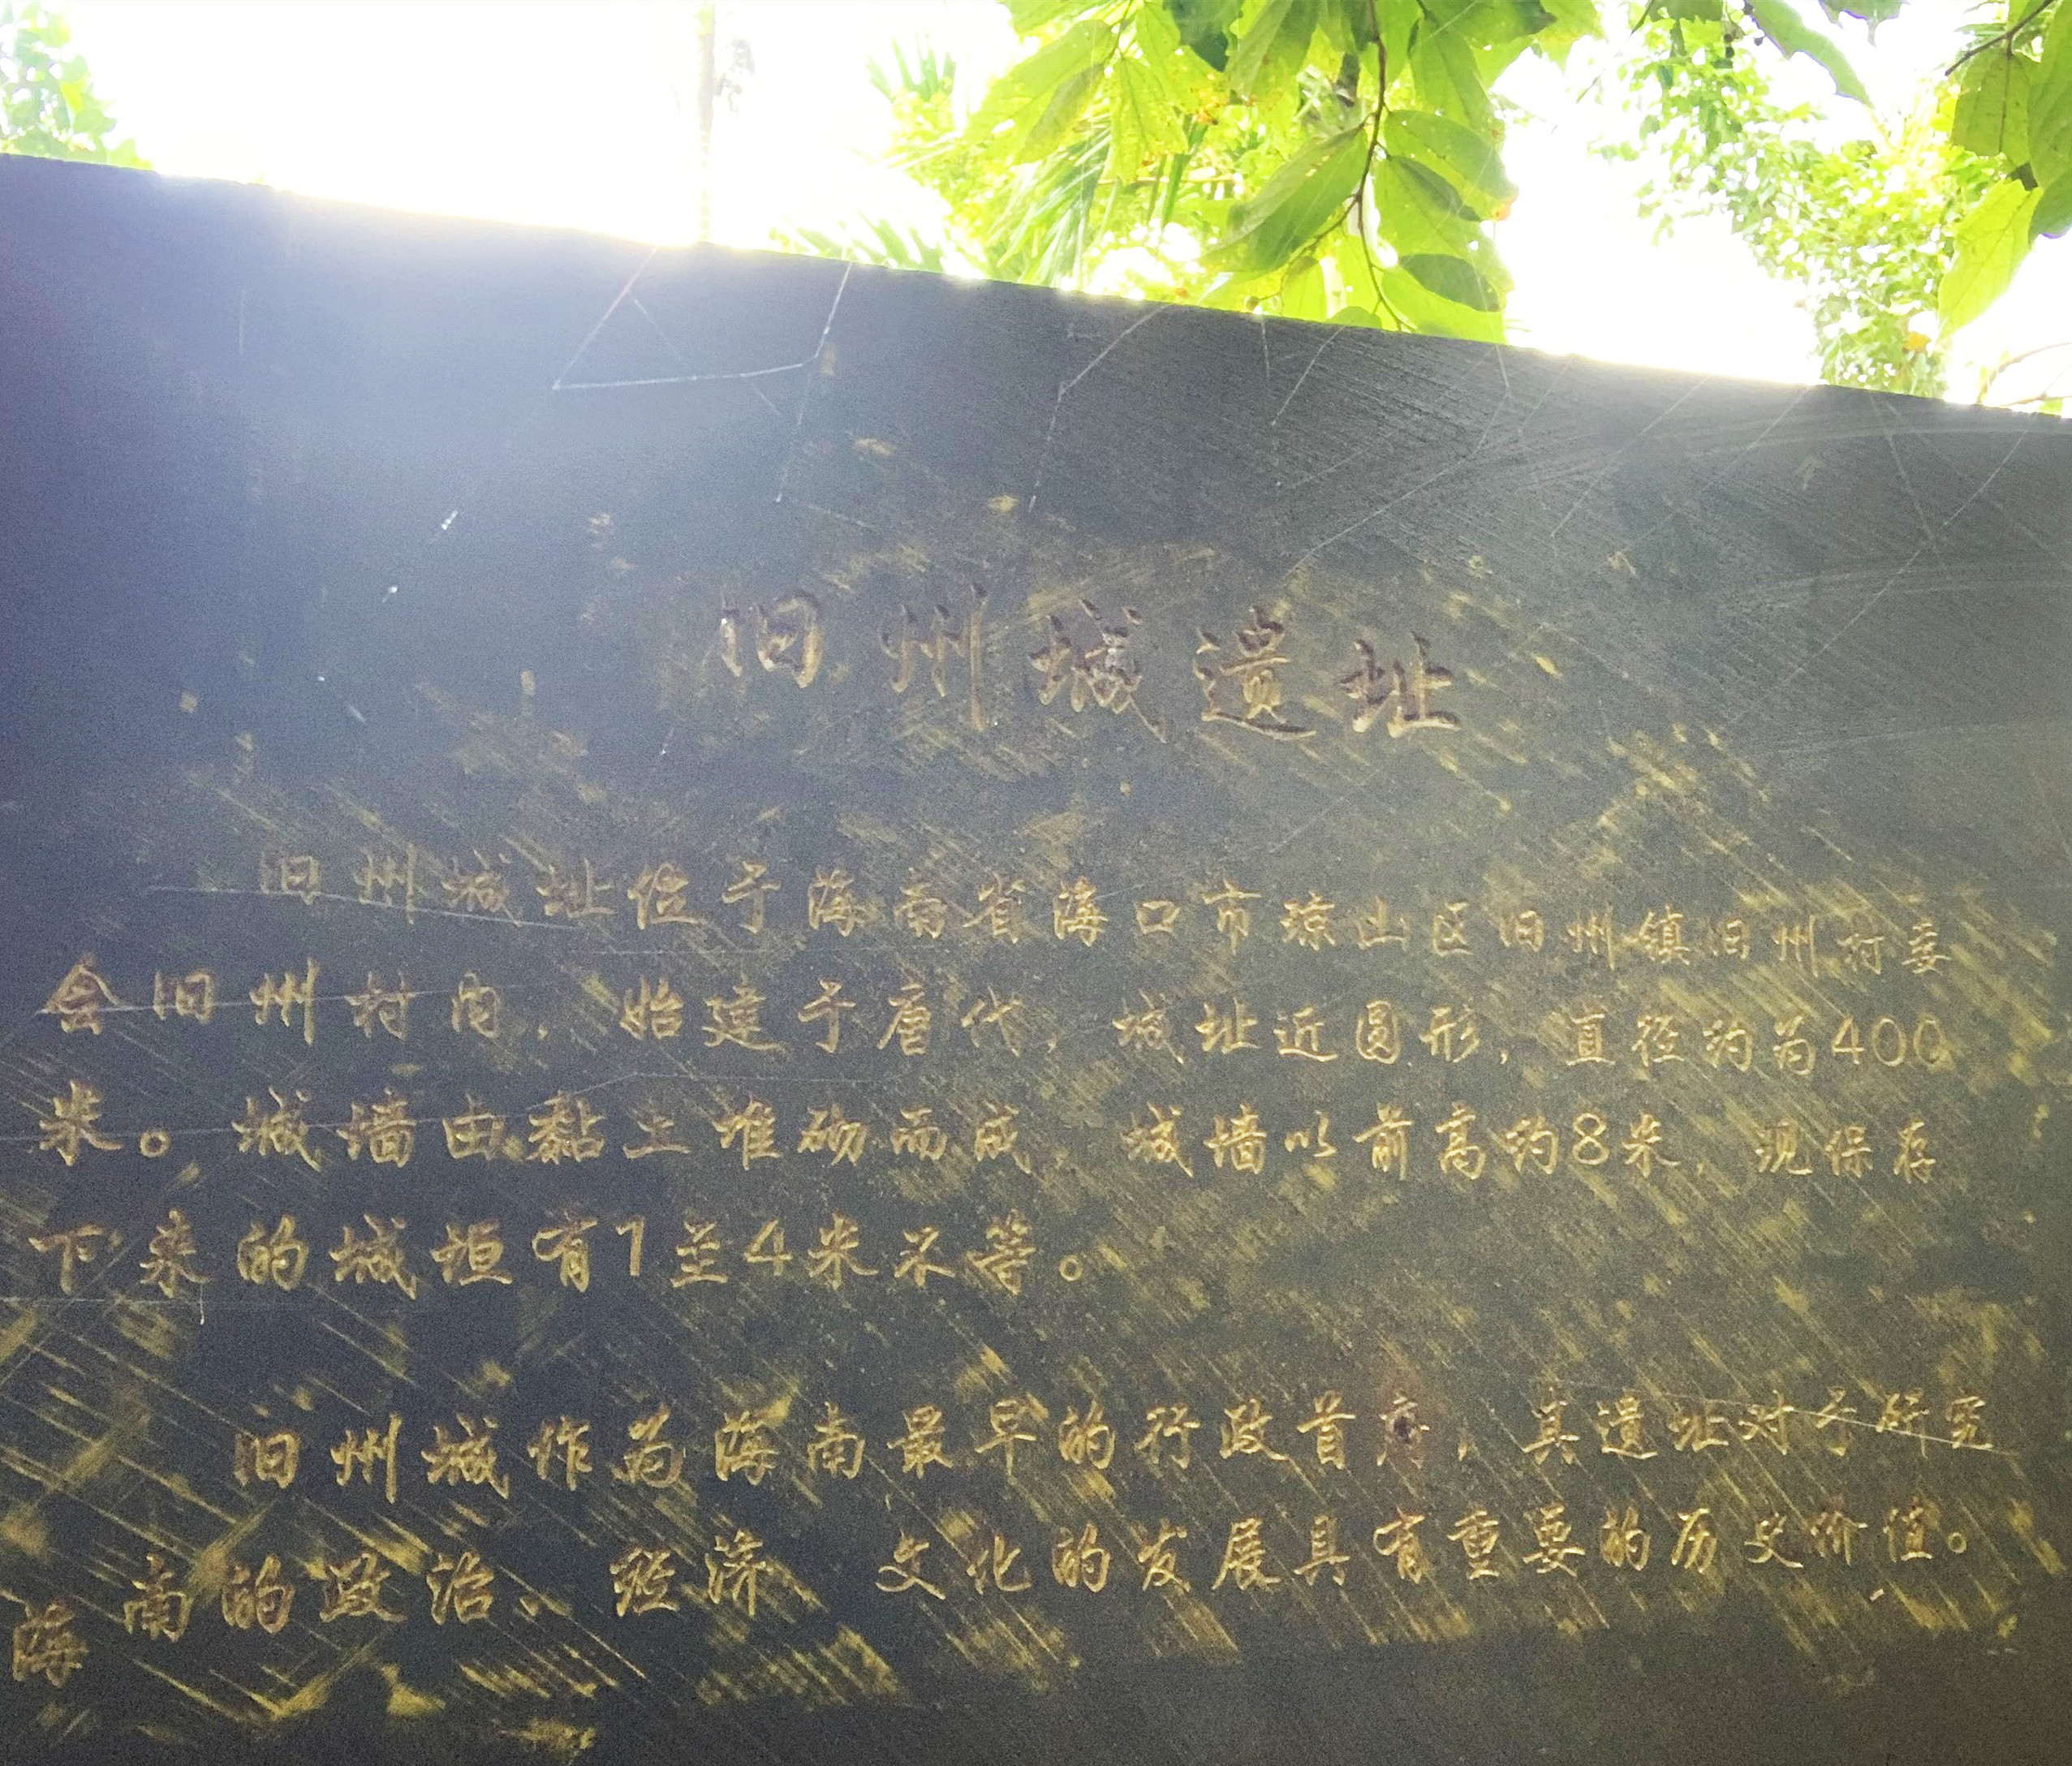 旧州城遗址
旧州城址位于海南省海口市琼山区旧州镇旧州村委
会旧州村内，始建于唐代，城址近圆形，直径约为400
米。城墙由黏土堆砌而成，城墙以前高约8米，现保存
下来的城垣有1至4米不等。
旧州城作为海南最早的行政首府，其遗址对于研究
海南的政治、经济 文化的发展具有重要的历史价值。